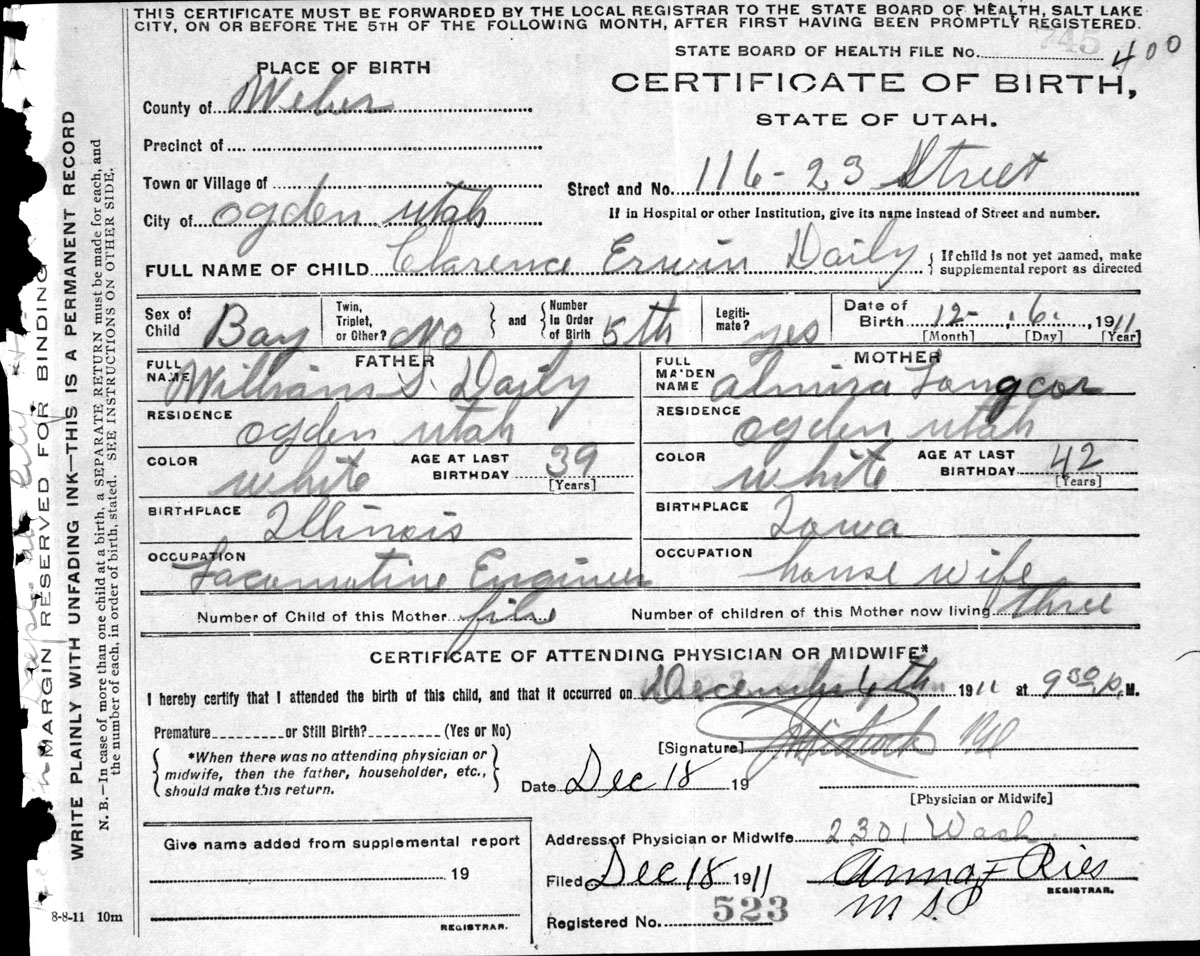 THIS CERTIFICATE MUST BE FORWARDED BY THE LOCAL REGISTRAR TO THE STATE BOARD OF HEALTH, SALT LAKE
CITY, ON OR BEFORE THE 5TH OF THE FOLLOWING MONTH, AFTER FIRST HAVING BEEN PROMPTLY REGISTERED.
STATE BOARD OF HEALTH FILE No. 745 400
PLACE OF BIRTH
CERTIFICATE OF BIRTH,
STATE OF UTAH.
County of Weber
Precinct of
Town or Village of
Street and No. 116-23 Street
City of Ogden Utah
If in Hospital or other Institution, give its name instead of Street and number.
FULL NAME OF CHILD Clarence Erwin Daily
If child is not yet named, make
supplemental report as directed
Sex of Child Boy
Twin, Triplet, or Other? No and Number In Order of Birth 5th
Legiti-mate? yes
Date of Birth 12 - 6. 1911
[Month] [Day] [Year]
FATHER
FULL NAME William S. Daily
RESIDENCE Ogden Utah
COLOR White AGE AT LAST BIRTHDAY 39
[Years]
BIRTHPLACE Illinois
OCCUPATION Locomotive Engineer
MOTHER
FULL MAIDEN NAME Almira Longcor
RESIDENCE Ogden Utah
COLOR White AGE AT LAST BIRTHDAY 42
[Years]
BIRTHPLACE Iowa
OCCUPATION house wife
Number of Child of this Mother five Number of children of this Mother now living three
CERTIFICATE OF ATTENDING PHYSICIAN OR MIDWIFE*
I hereby certify that I attended the birth of this child, and that it occurred on December 6th 1911 at 9 30 p. M.
Premature or Still Birth? (Yes or No)
*When there was no attending physician or
midwife, then the father, householder, etc.,
should make this return.
[Signature]
Date Dec 18 19
[Physician or Midwife]
Give name added from supplemental report
19
REGISTRAR.
Address of Physician or Midwife 2301 Wash.
Filed Dec 18 1911 Anna F Ries
REGISTRAR.
Registered No. 523
8-8-11 10m
MARGIN RESERVED FOR BINDING
WRITE PLAINLY WITH UNFADING INK—THIS IS A PERMANENT RECORD
N. B.—In case of more than one child at a birth, a SEPARATE RETURN must be made for each, and
the number of each, in order of birth, stated. SEE INSTRUCTIONS ON OTHER SIDE.